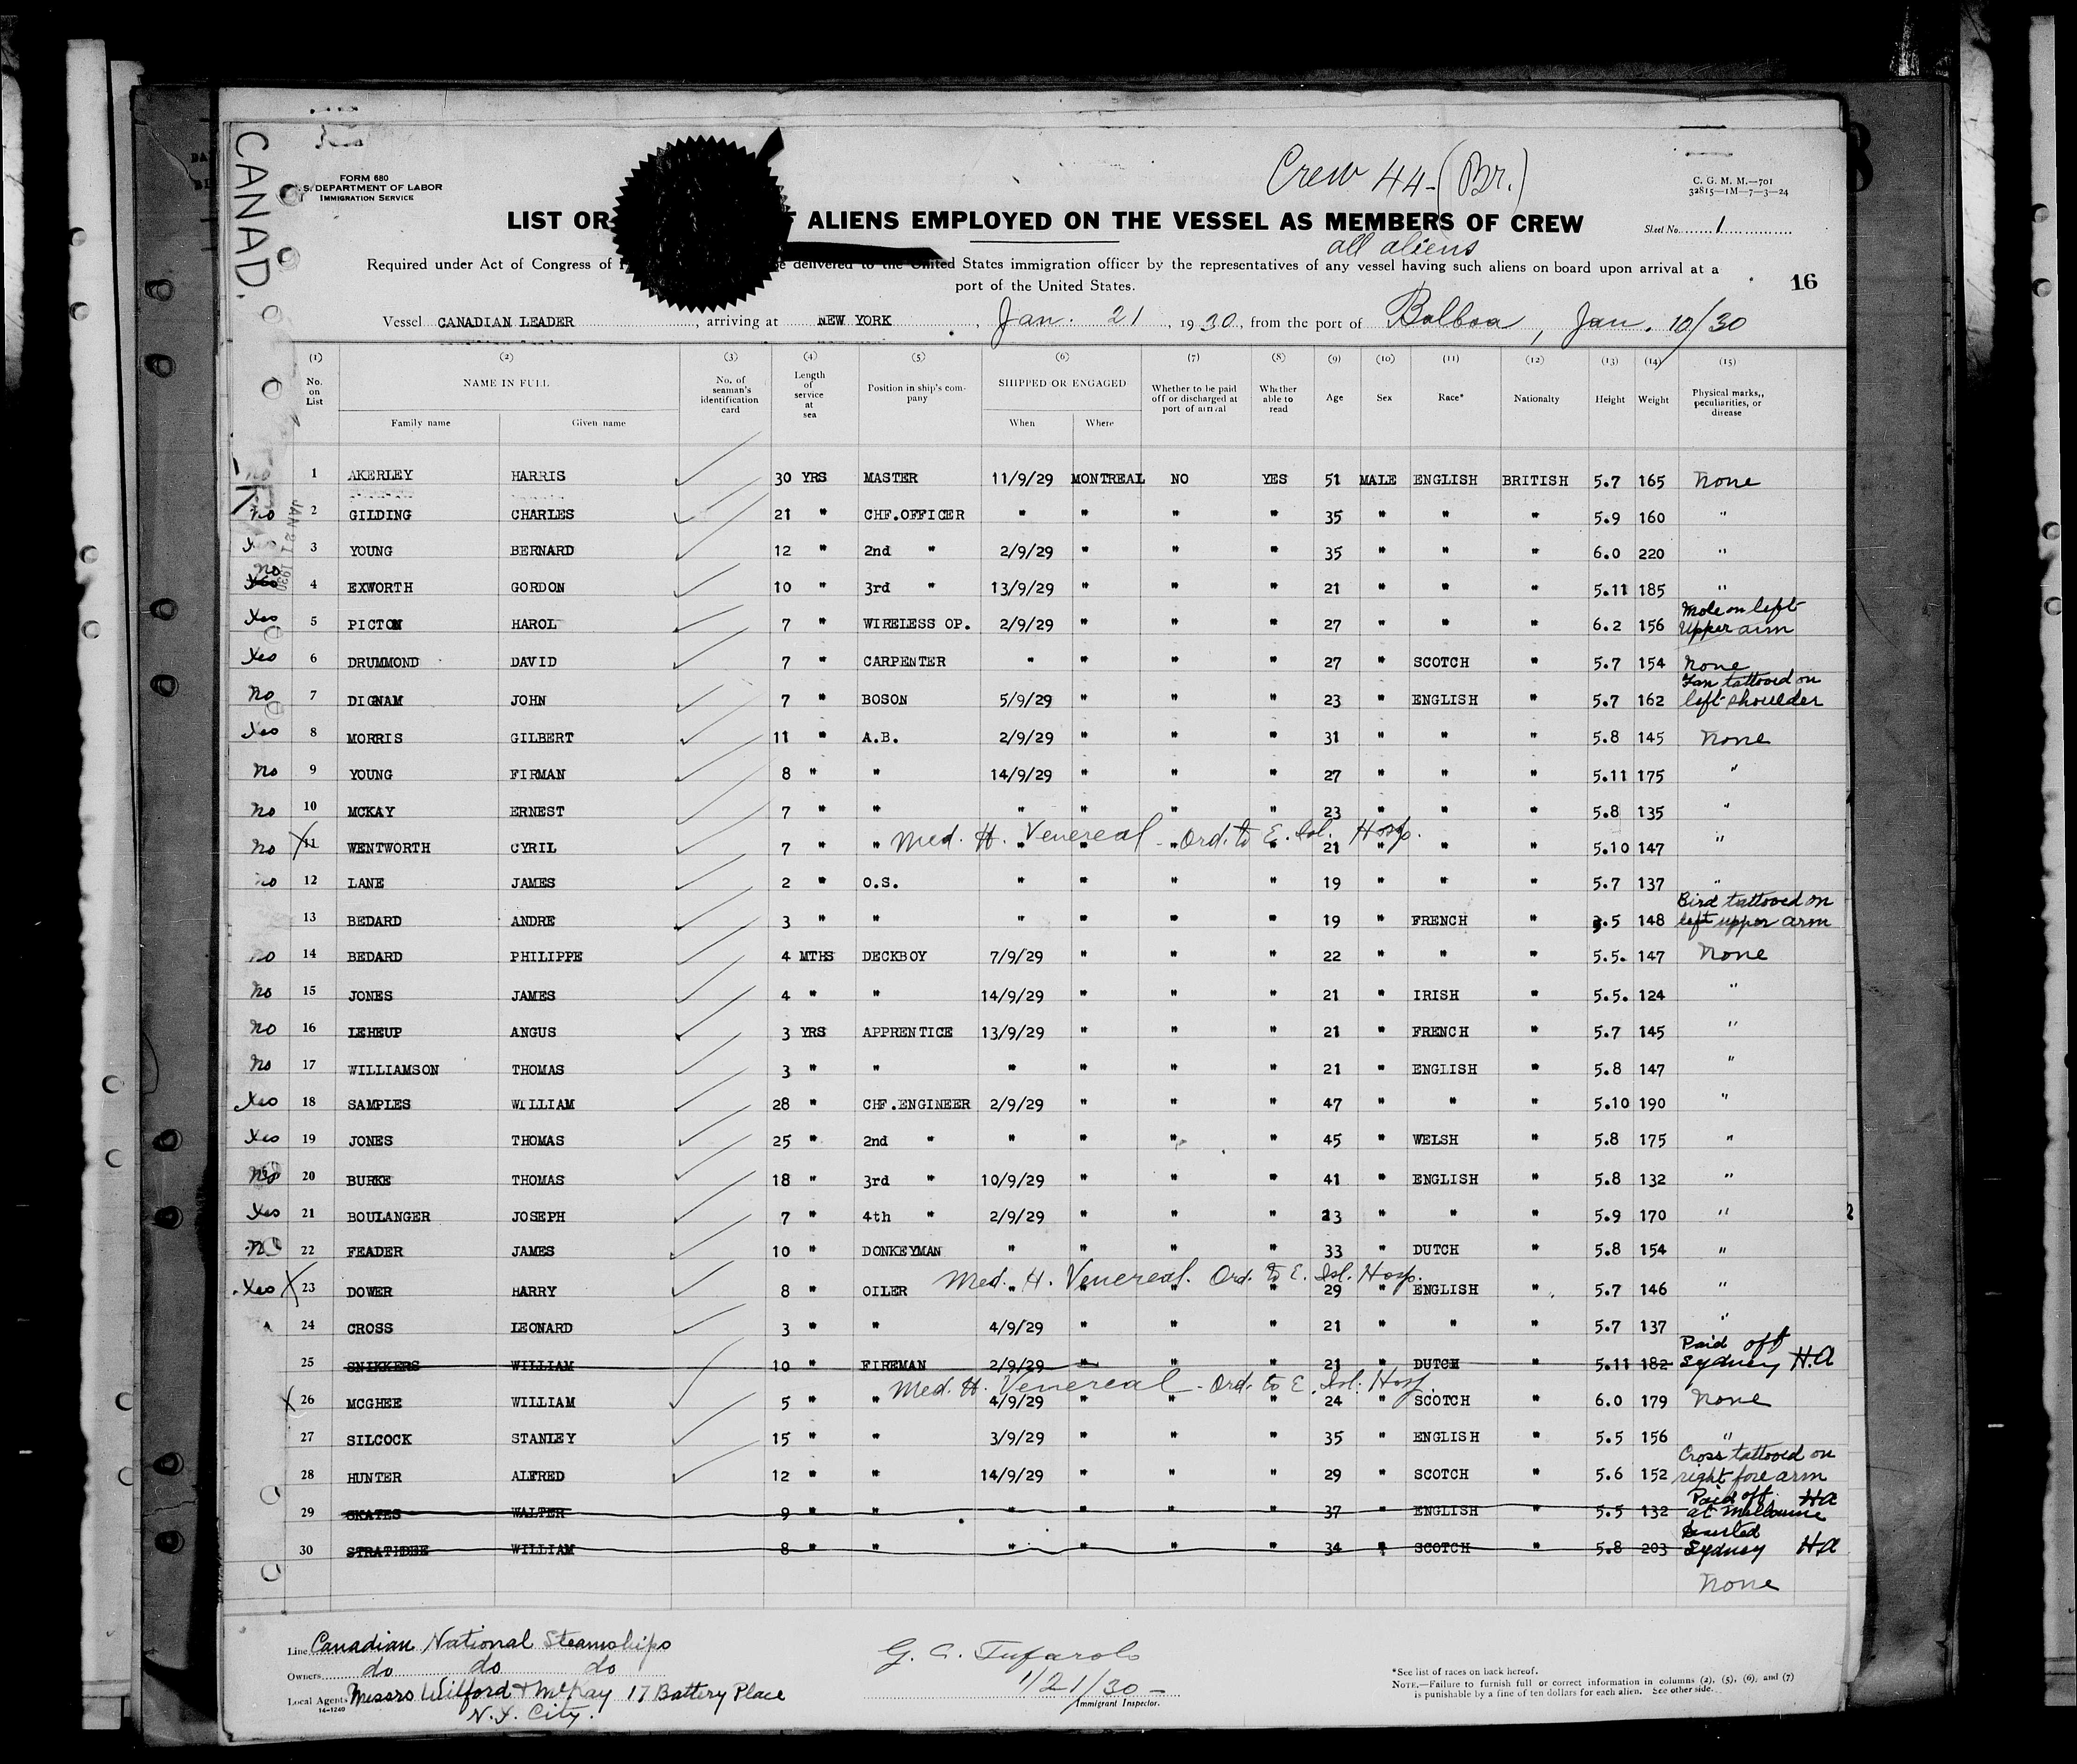 CANAD.
FORM 680
S. DEPARTMENT OF LABOR
IMMIGRATION SERVICE
Crew 44-(Br.)
C. G. M. M.—701
32815—1M—7—3—24
LIST OR ALIENS EMPLOYED ON THE VESSEL AS MEMBERS OF CREW
Sheet No. 1
all aliens
Required under Act of Congress of delivered to the United States immigration officer by the representatives of any vessel having such aliens on board upon arrival at a
port of the United States.
16
Vessel CANADIAN LEADER, arriving at NEW YORK, Jan. 21, 1930, from the port of Balboa, Jan. 10/30
(1) (2) (3) (4) (5) (6) (7) (8) (9) (10) (11) (12) (13) (14) (15)
No. on List NAME IN FULL Family name Given name No. of seaman's identification card Length of service at sea Position in ship's company SHIPPED OR ENGAGED When Where Whether to be paid off or discharged at port of arrival Whether able to read Age Sex Race* Nationalty Height Weight Physical marks, peculiarities, or disease
JAN 21 1930
1 AKERLEY HARRIS 30 YRS MASTER 11/9/29 MONTREAL NO YES 51 MALE ENGLISH BRITISH 5.7 165 None
no 2 GILDING CHARLES 21 " CHF.OFFICER " " " " 35 " " " 5.9 160 "
3 YOUNG BERNARD 12 " 2nd " 2/9/29 " " " 35 " " " 6.0 220 "
no Yes 4 EXWORTH GORDON 10 " 3rd " 13/9/29 " " " 21 " " " 5.11 185 "
Yes 5 PICTON HAROL 7 " WIRELESS OP. 2/9/29 " " " 27 " " " 6.2 156 Mole on left Upper arm
Yes 6 DRUMMOND DAVID 7 " CARPENTER " " " " 27 " SCOTCH " 5.7 154 None
No 7 DIGNAM JOHN 7 " BOSON 5/9/29 " " " 23 " ENGLISH " 5.7 162 Fan tattooed on left shoulder
Yes 8 MORRIS GILBERT 11 " A.B. 2/9/29 " " " 31 " " " 5.8 145 None
No 9 YOUNG FIRMAN 8 " " 14/9/29 " " " 27 " " " 5.11 175 "
No 10 MCKAY ERNEST 7 " " " " " " 23 " " " 5.8 135 "
Med. H. Venereal - Ord. to E. Isl. Hosp.
No X 11 WENTWORTH CYRIL 7 " " " " " " 21 " " " 5.10 147 "
no 12 LANE JAMES 2 " O.S. " " " " 19 " " " 5.7 137 "
13 BEDARD ANDRE 3 " " " " " " 19 " FRENCH " .5 148 Bird tattooed on left upper arm
no 14 BEDARD PHILIPPE 4 MTHS DECKBOY 7/9/29 " " " 22 " " " 5.5. 147 None
No 15 JONES JAMES 4 " " 14/9/29 " " " 21 " IRISH " 5.5. 124 "
No 16 LEHEUP ANGUS 3 YRS APPRENTICE 13/9/29 " " " 21 " FRENCH " 5.7 145 "
No 17 WILLIAMSON THOMAS 3 " " " " " " 21 " ENGLISH " 5.8 147 "
Yes 18 SAMPLES WILLIAM 28 " CHF.ENGINEER 2/9/29 " " " 47 " " " 5.10 190 "
Yes 19 JONES THOMAS 25 " 2nd " " " " " 45 " WELSH " 5.8 175 "
No 20 BURKE THOMAS 18 " 3rd " 10/9/29 " " " 41 " ENGLISH " 5.8 132 "
Yes 21 BOULANGER JOSEPH 7 " 4th " 2/9/29 " " " 23 " " " 5.9 170 "
No 22 FEADER JAMES 10 " DONKEYMAN " " " " 33 " DUTCH " 5.8 154 "
Med. H. Venereal. Ord. to E. Isl. Hosp.
Yes X 23 DOWER HARRY 8 " OILER " " " " 29 " ENGLISH " 5.7 146 "
24 CROSS LEONARD 3 " " 4/9/29 " " " 21 " " " 5.7 137 "
25 SNIKKERS WILLIAM 10 " FIREMAN 2/9/29 " " " 21 " DUTCH " 5.11 182 Paid off Sydney H.A
Med. H. Venereal - Ord. to E. Isl. Hosp.
X 26 MCGHEE WILLIAM 5 " " 4/9/29 " " " 24 " SCOTCH " 6.0 179 None
27 SILCOCK STANLEY 15 " " 3/9/29 " " " 35 " ENGLISH " 5.5 156 "
28 HUNTER ALFRED 12 " " 14/9/29 " " " 29 " SCOTCH " 5.6 152 Cross tattooed on right fore arm
29 SKATES WALTER 9 " " " " " " 37 " ENGLISH " 5.5 132 Paid off at Melbourne HA
30 STRATHDEE WILLIAM 8 " " " " " " 34 " SCOTCH " 5.8 203 Deserted Sydney HA
None
Line Canadian National Steamships
Owners do do do
Local Agents Messrs Wilford & McKay 17 Battery Place
N.Y. City.
14-1240
G. C. Tufarolo
1/21/30-
Immigrant Inspector.
*See list of races on back hereof.
NOTE.—Failure to furnish full or correct information in columns (2), (5), (6), and (7)
is punishable by a fine of ten dollars for each alien. See other side.